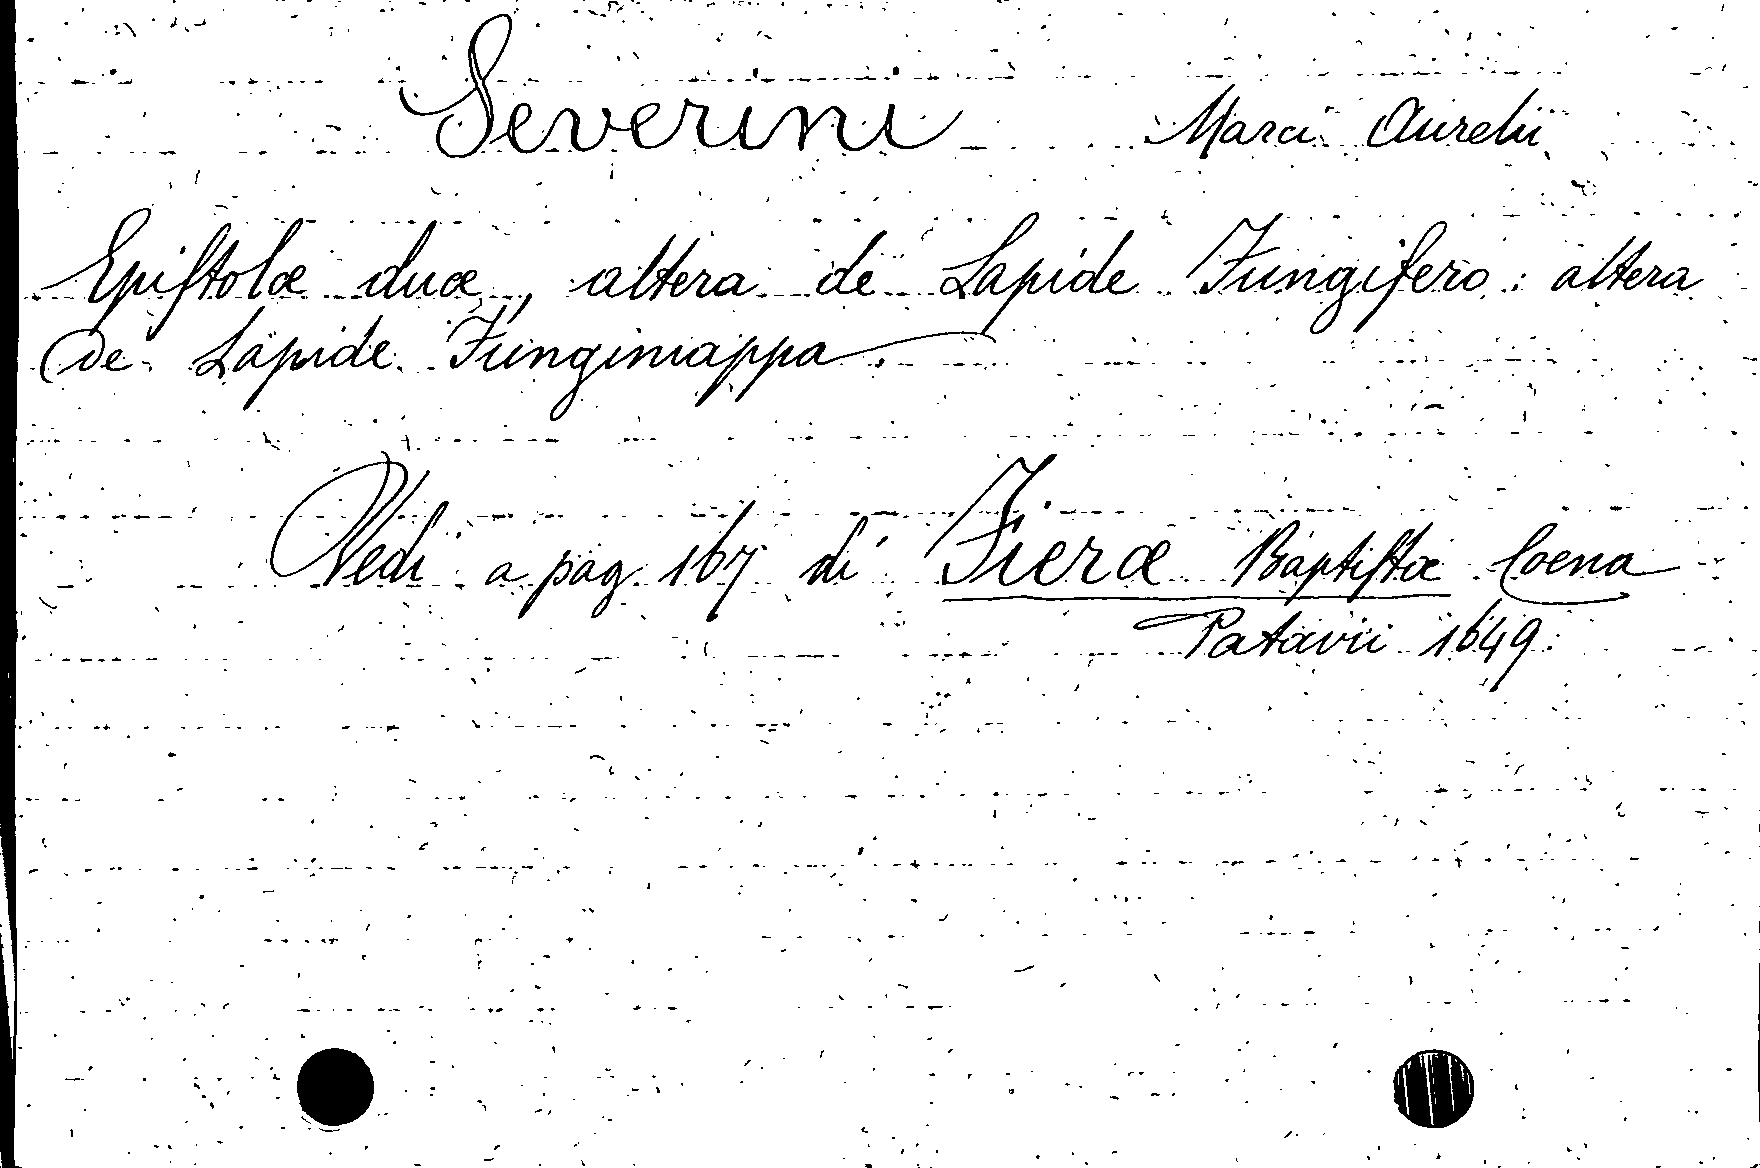 Severini Marci Aurelii
Epiſtolæ duæ, altera de Lapide Fungifero: altera
de Lapide Fungimappa.
Vedi a pag. 167 di Fieræ Baptiſtæ Coena
Patavii 1649.